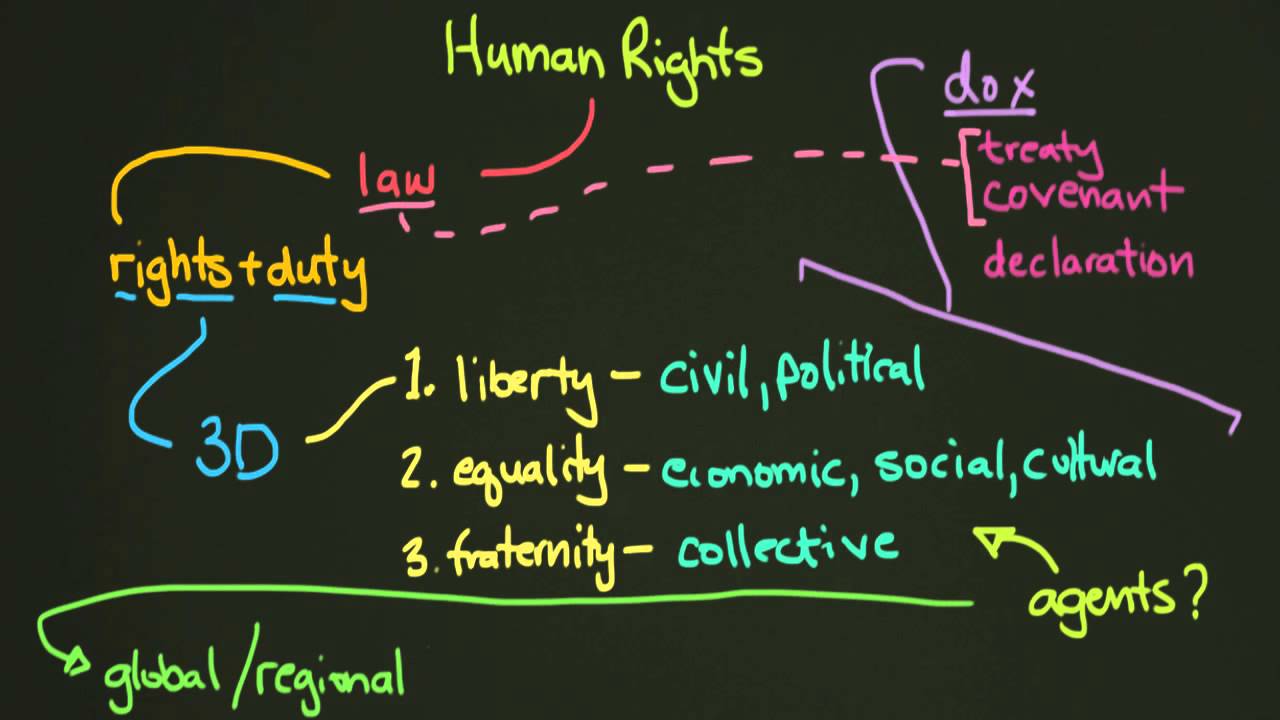 Human Rights
dox
law
treaty
covenant
declaration
rights + duty
3D
1. liberty – civil, political
2. equality – economic, social, cultural
3. fraternity – collective
agents?
global/regional